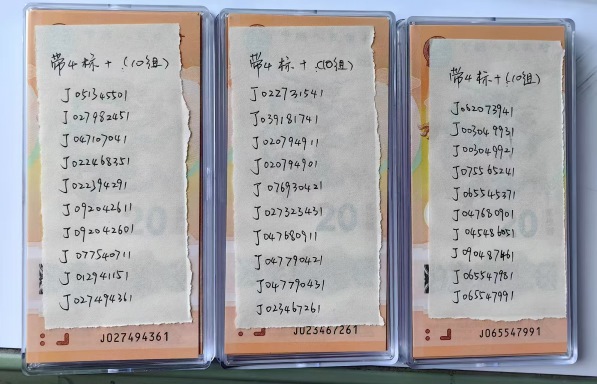 带4标十(10组)
J051345501
J027982451
J047107041
J022468351
J022394291
J092042611
J092042601
J077540711
J012941151
J027494361
J027494361
带4标十(10组)
J022731541
J039181741
J020794911
J020794901
J076930421
J027323431
J047680911
J047790421
J047790431
J023467261
J023467261
带4标十(10组)
J062073941
J003049931
J003049921
J075565241
J065545371
J047680901
J045486051
J090487461
J065547981
J065547991
J065547991